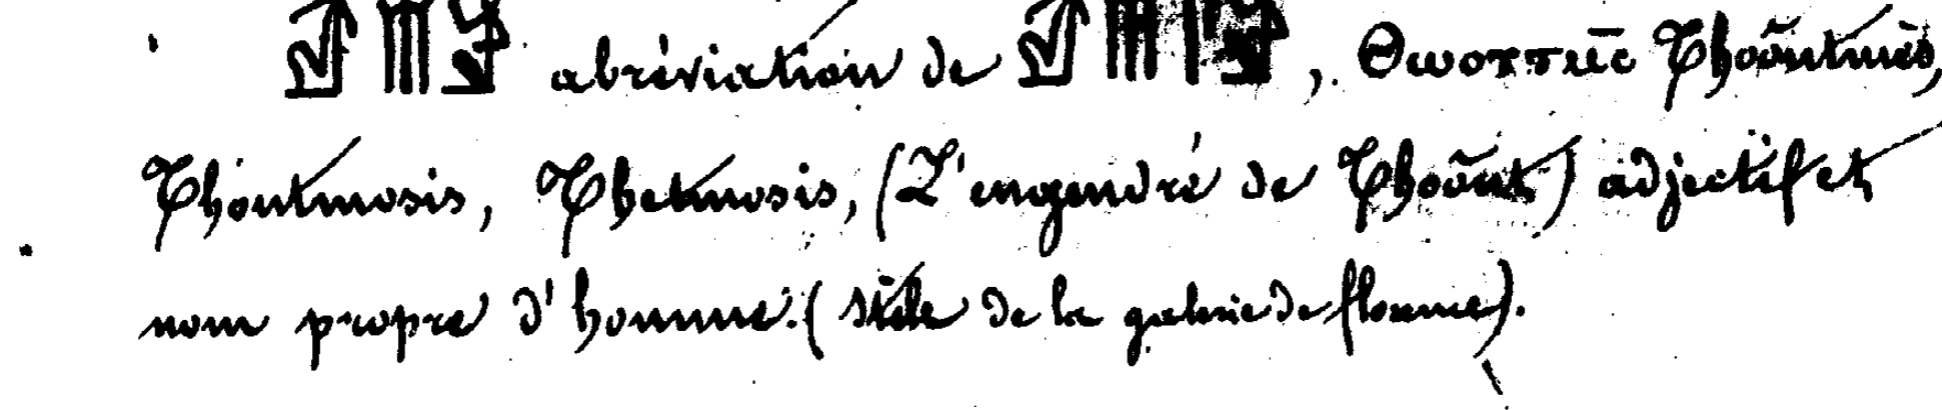 abréviation de , Θωοττⲙⲉ̄ⲥ Thoôutmès,
Thoutmosis, Thetmosis, (L'engendré de Thoôut) adjectif et
nom propre d'homme. (Stèle de la galerie de florence).